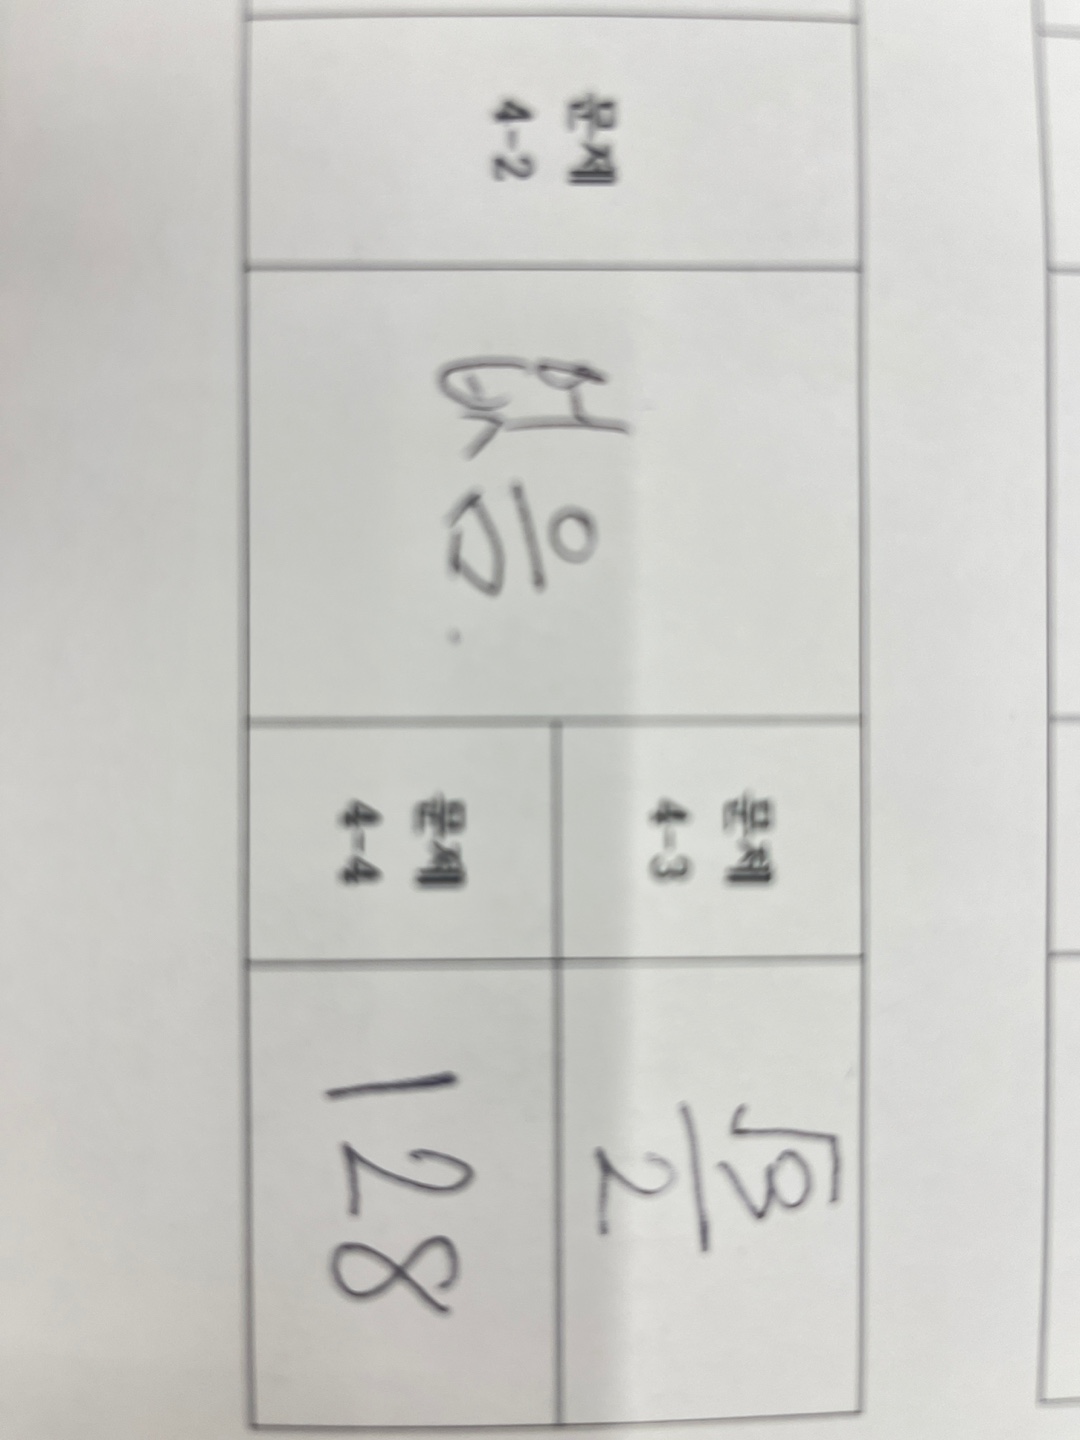 문제
4-2
없음.
문제
4-3
문제
4-4
128